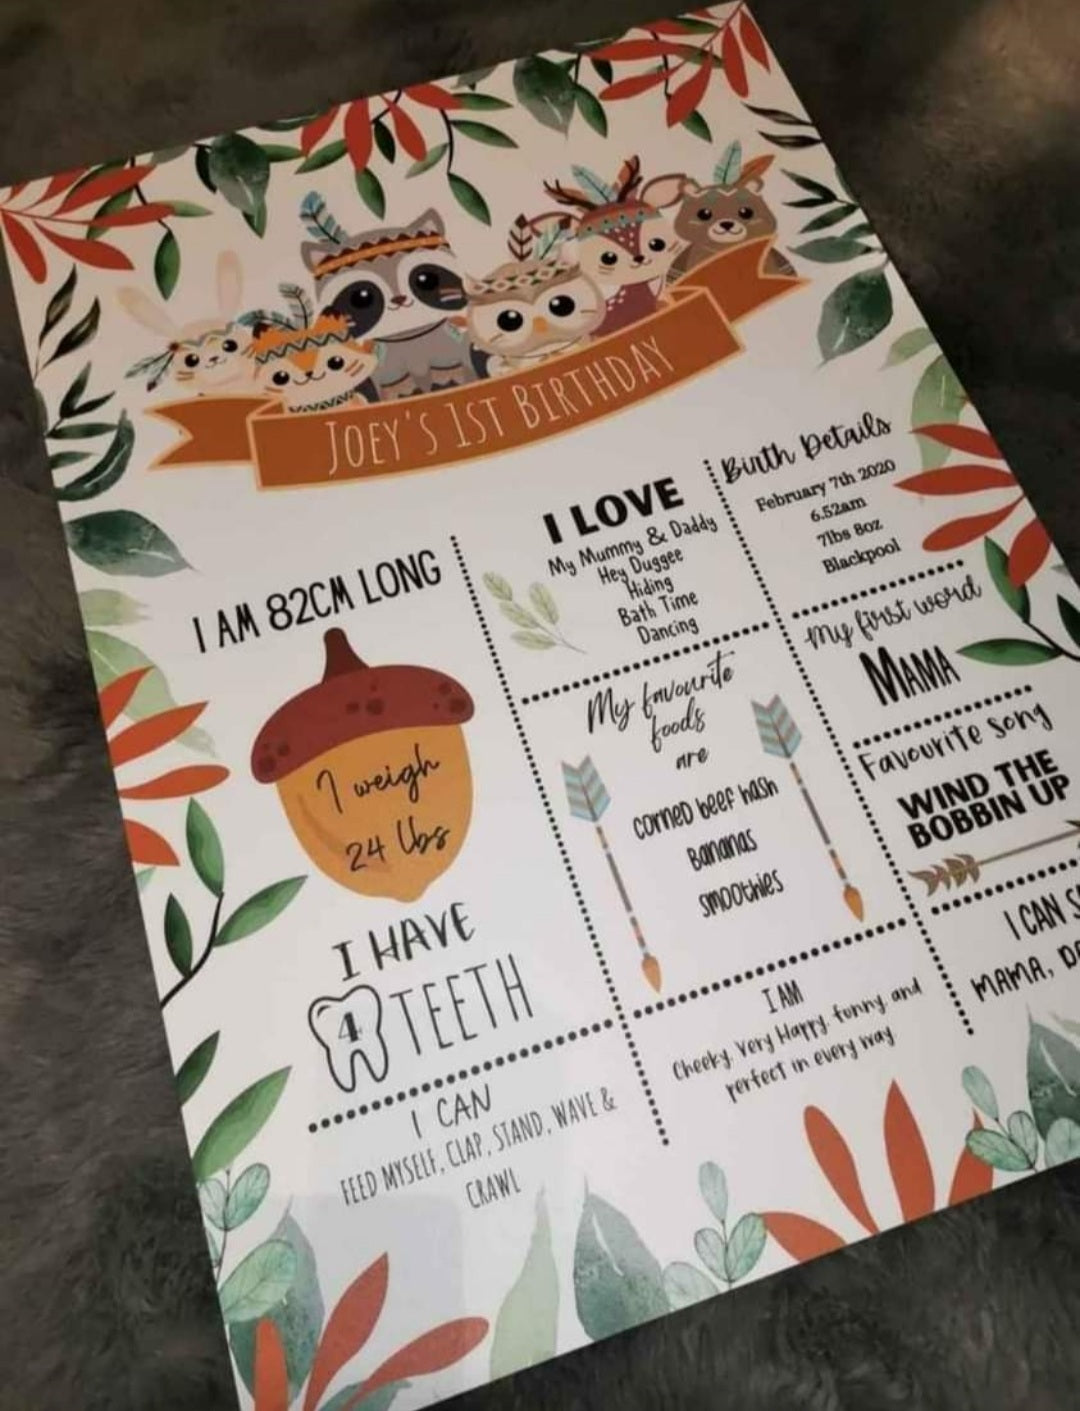 JOEY'S 1ST BIRTHDAY
I AM 82CM LONG
I weigh
24 lbs
I HAVE
4 TEETH
I CAN
FEED MYSELF, CLAP, STAND, WAVE &
CRAWL
I LOVE
My Mummy & Daddy
Hey Duggee
Hiding
Bath Time
Dancing
My favourite
foods
are
corned beef hash
Bananas
smoothies
I AM
Cheeky, Very Happy, funny, and
perfect in every way
Birth Details
February 7th 2020
6.52am
7lbs 8oz
Blackpool
My first word
MAMA
Favourite song
WIND THE
BOBBIN UP
I CAN
MAMA,